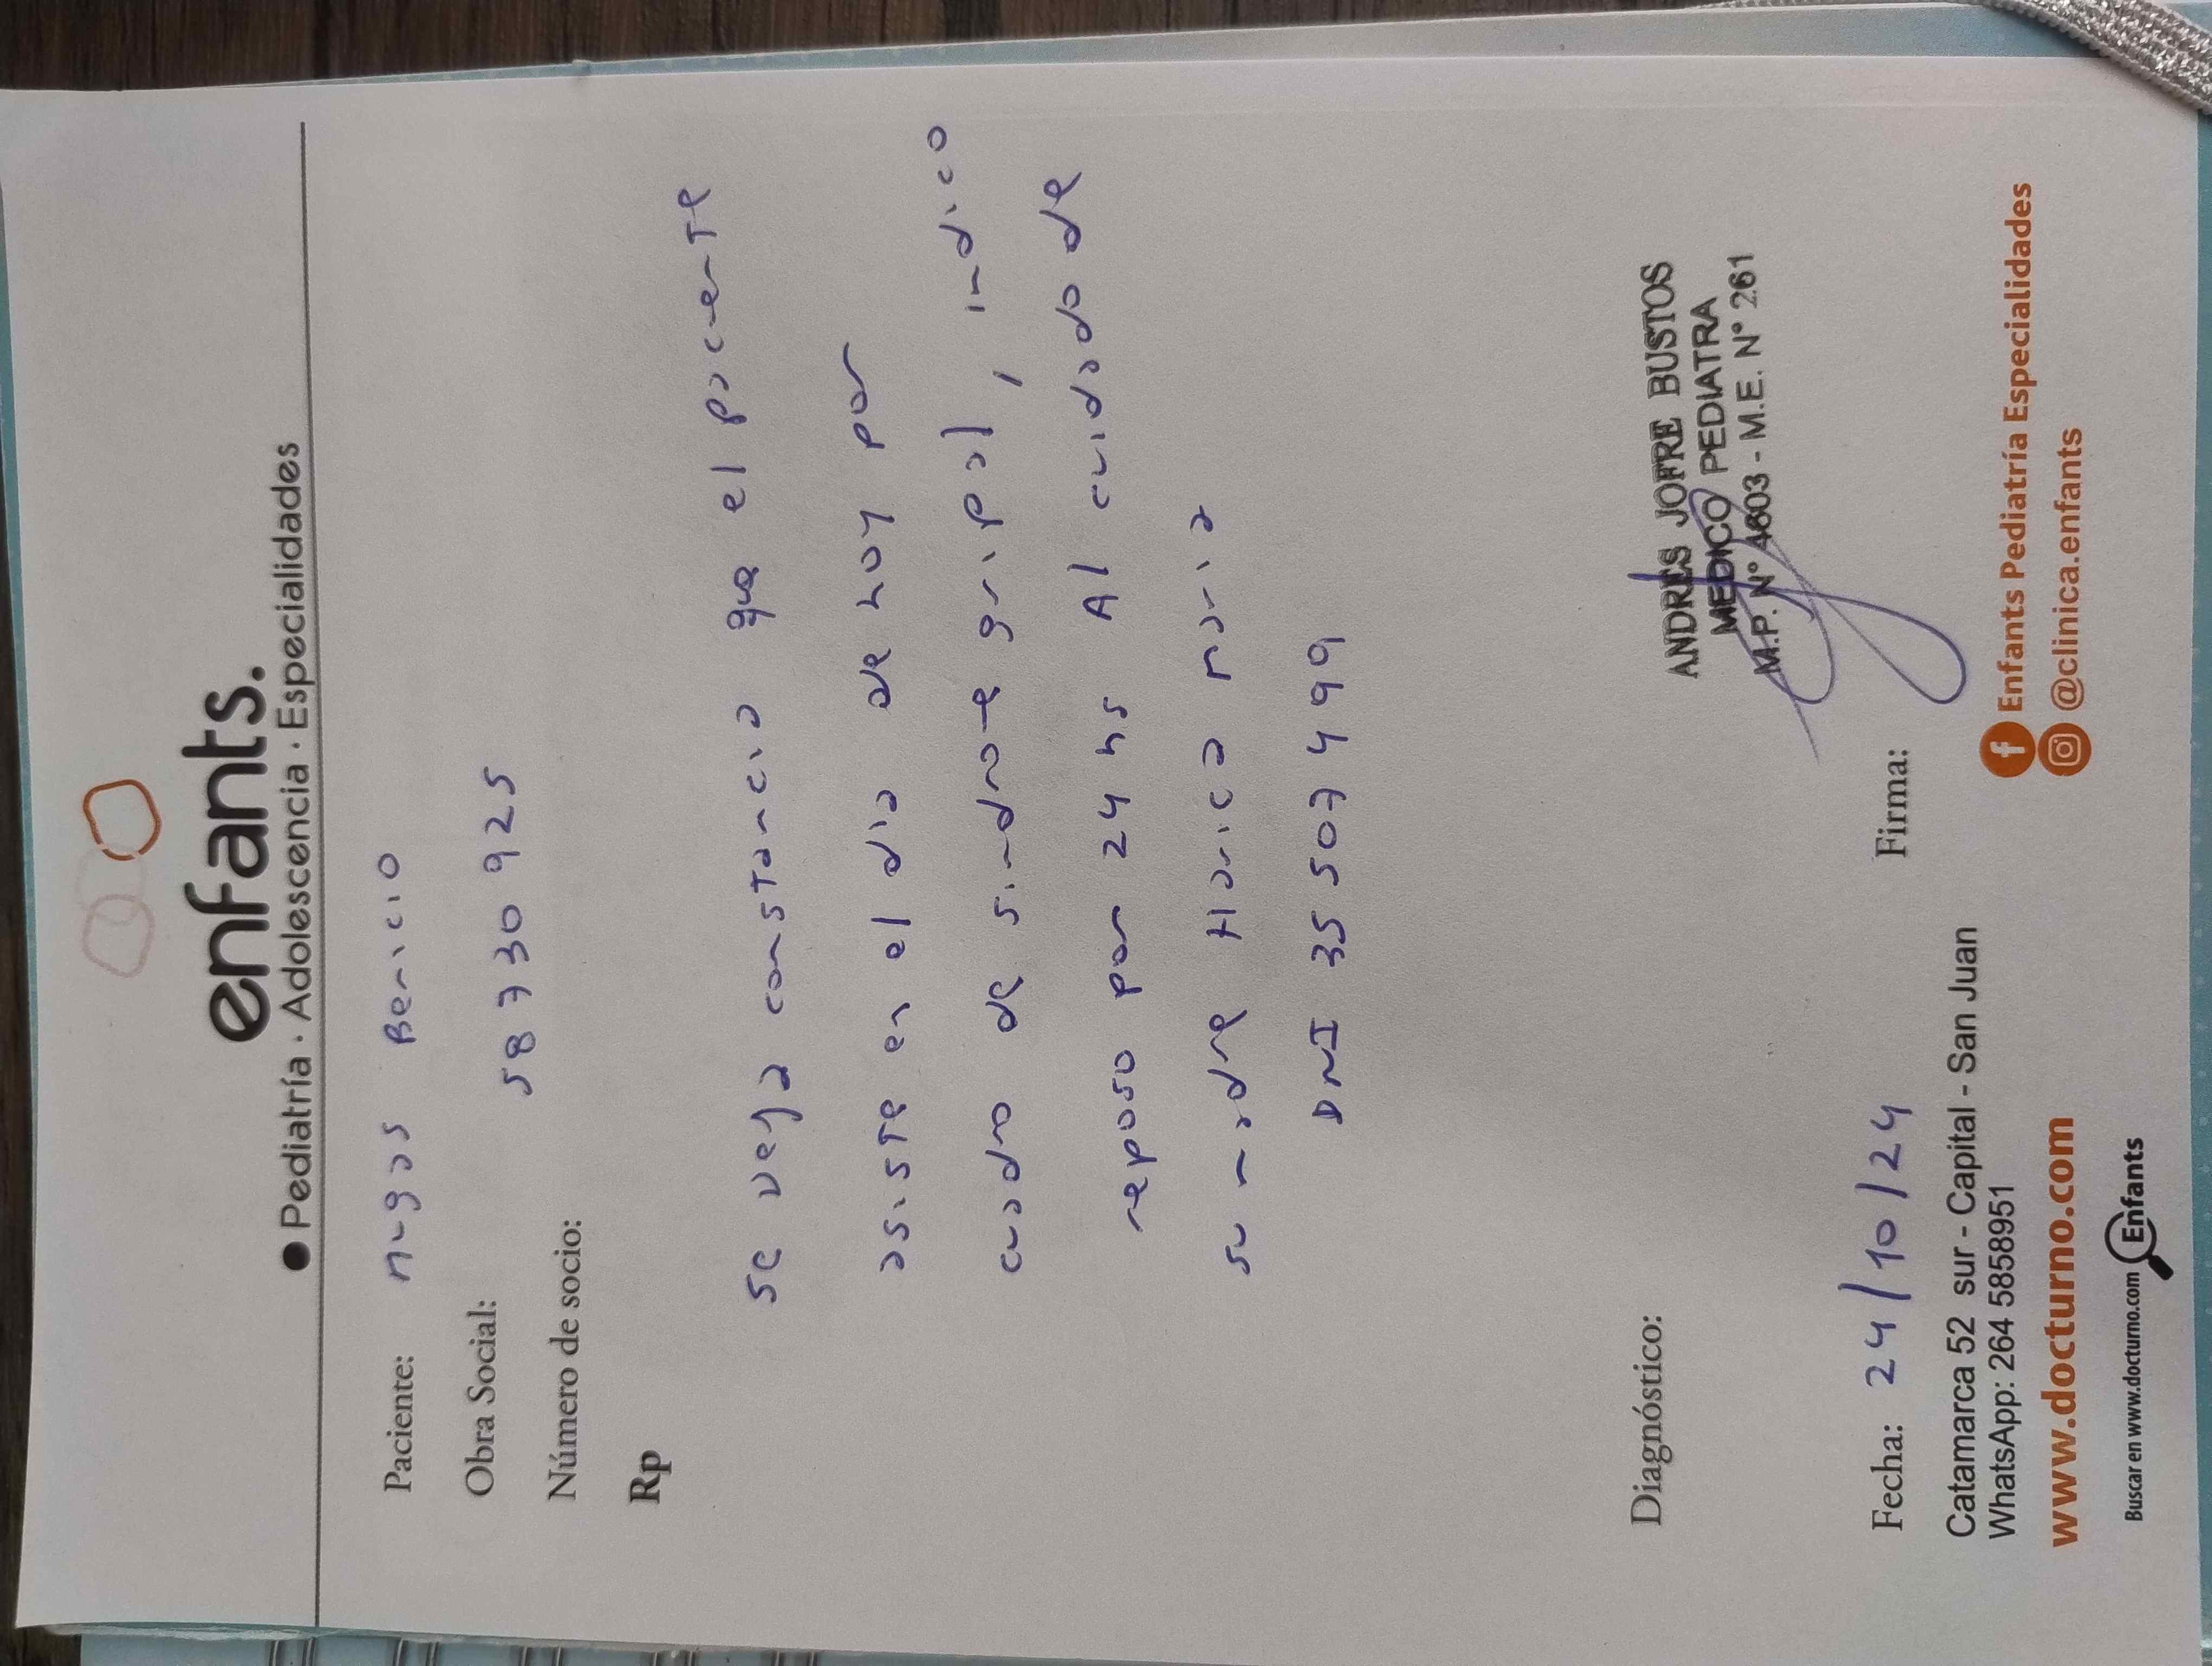 enfants.
Pediatría · Adolescencia · Especialidades
Paciente: Mugas Benicio
Obra Social:
58730925
Número de socio:
Rp
Se deja constancia que el paciente
asiste en el dia de hoy por
cuadro de sindrome gripal, indico
reposo por 24 hs Al cuidado de
su madre Marica Maria
DNI 35507499
Diagnóstico:
ANDRES JOFRE BUSTOS
MEDICO PEDIATRA
M.P. N° 4603 - M.E. N° 261
Fecha: 24/10/24
Firma:
Catamarca 52 sur - Capital - San Juan
WhatsApp: 264 5858951
www.docturno.com
Enfants Pediatría Especialidades
@clinica.enfants
Buscar en www.docturno.com Enfants